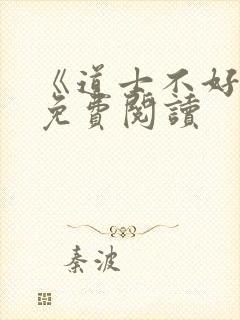 《道士不好
免費閱讀
秦波